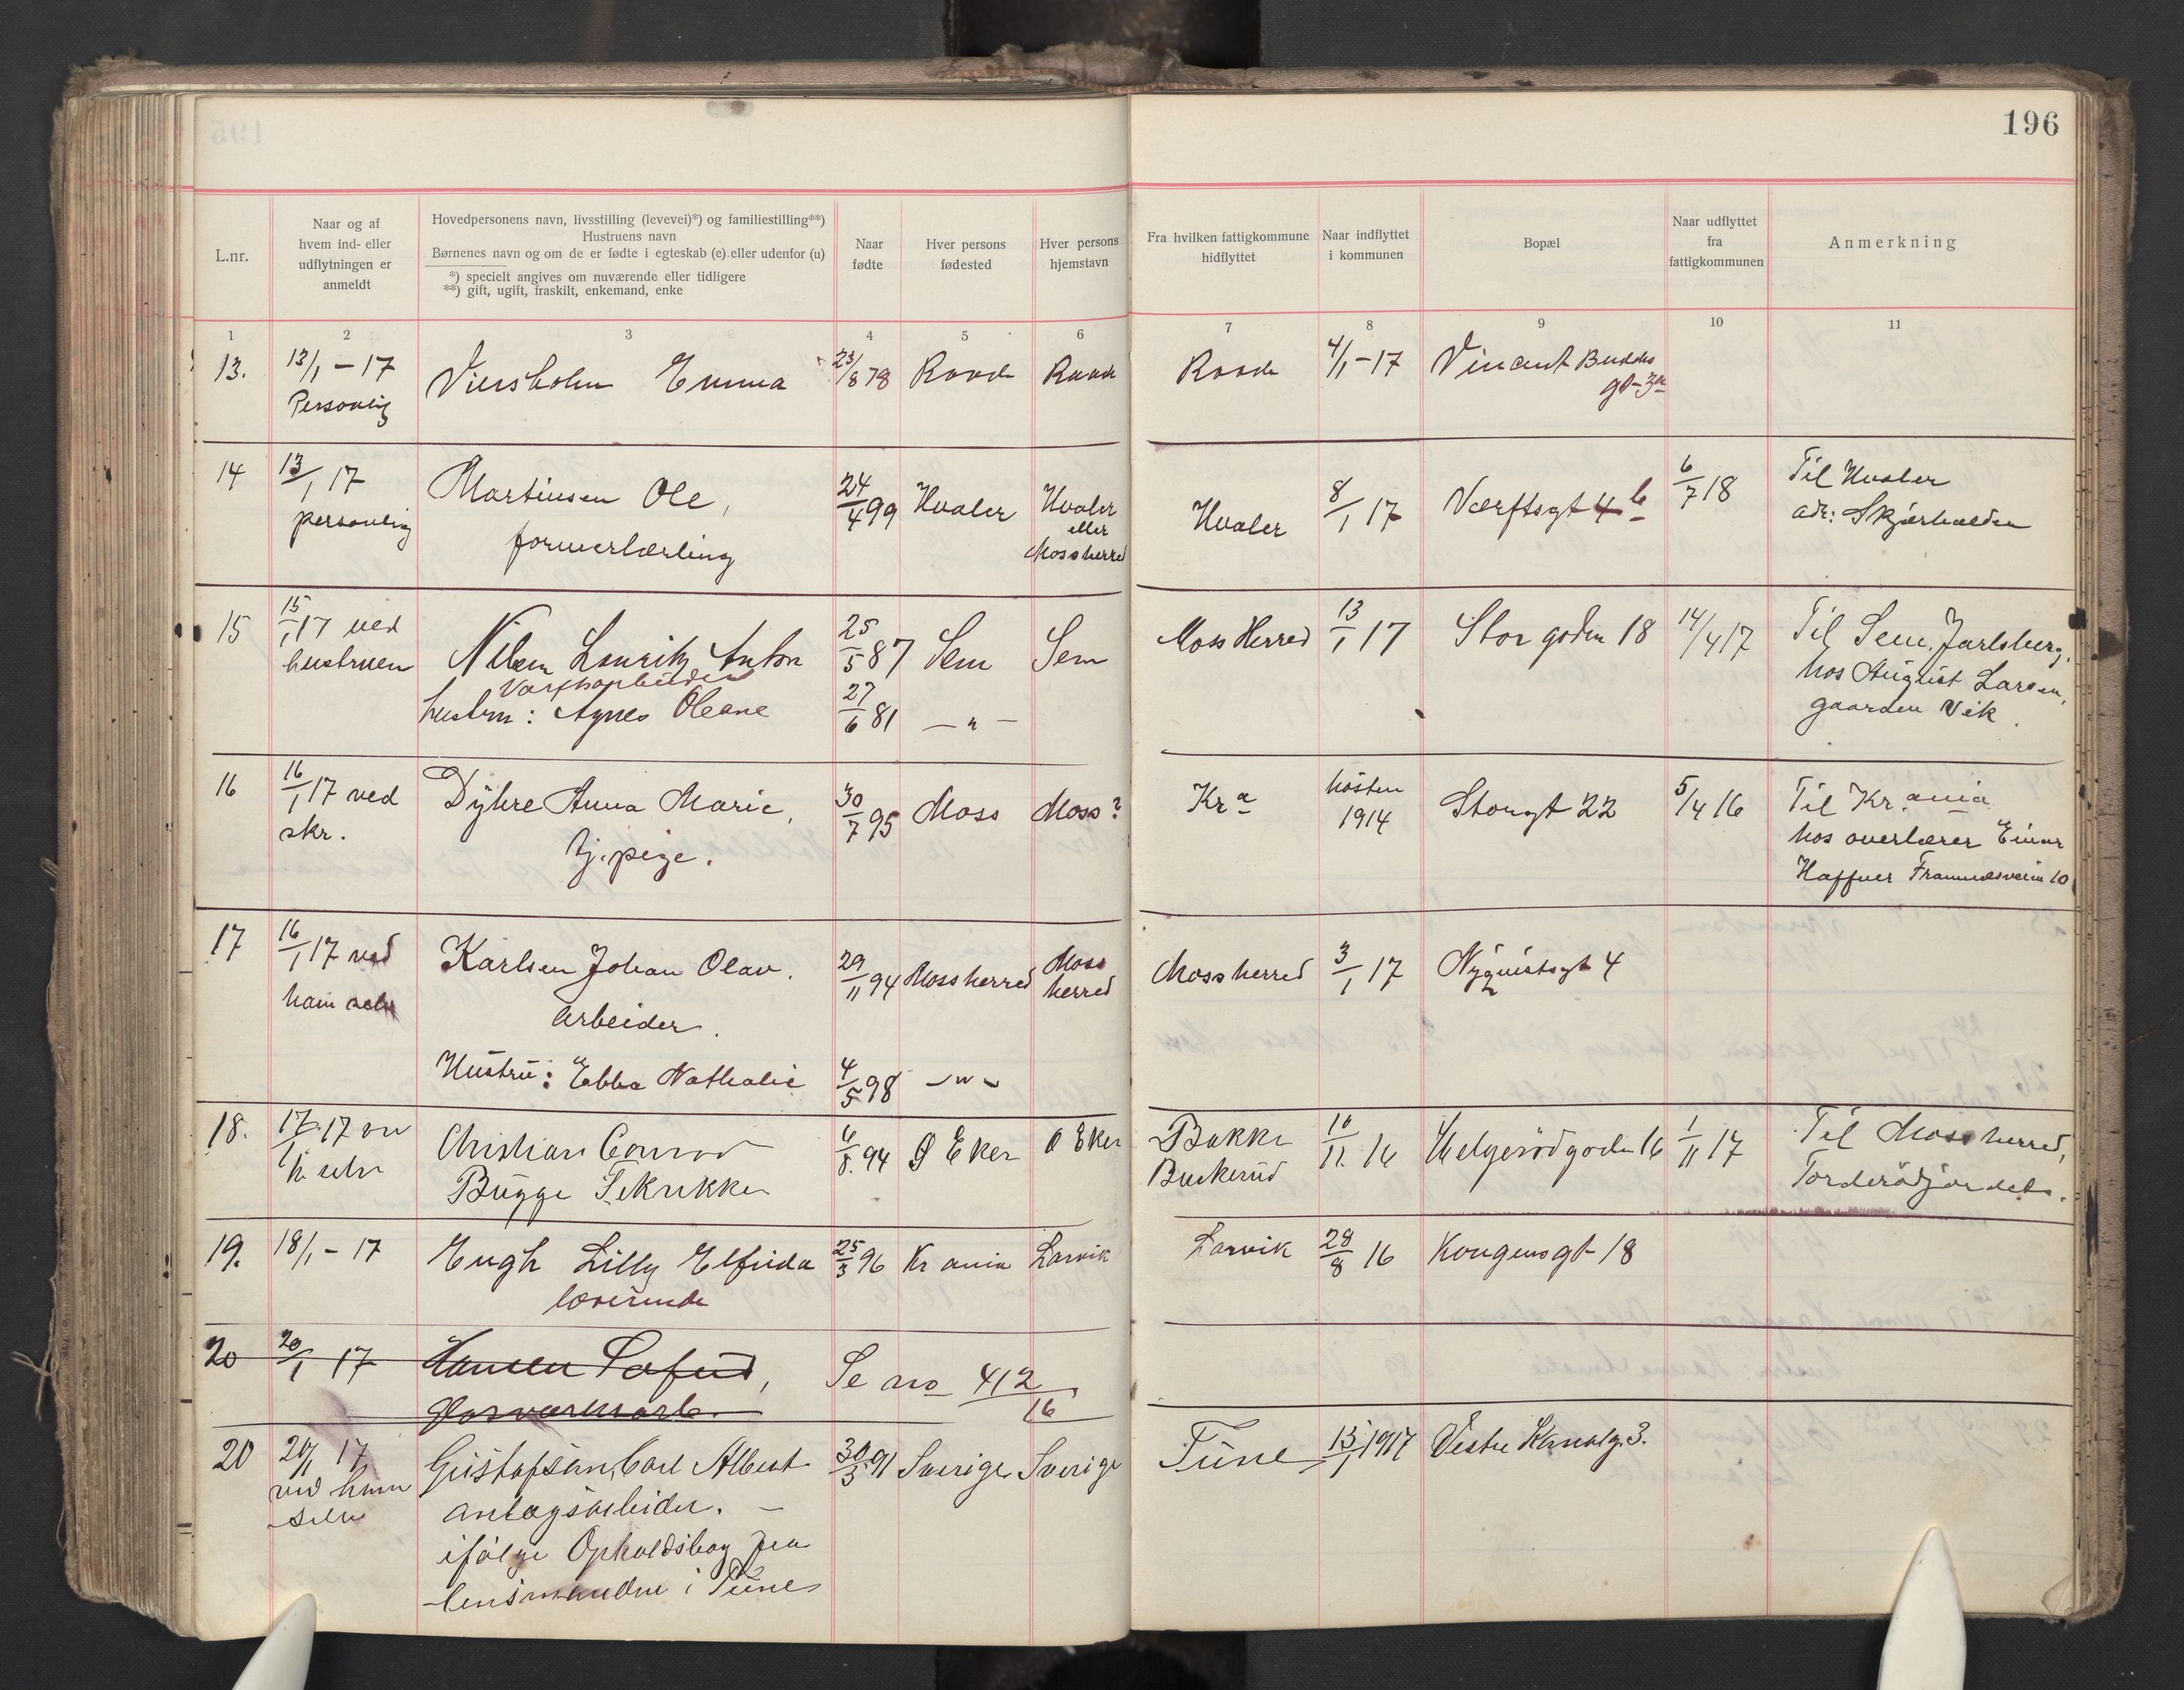 196
L.nr.
Naar og af
hvem ind- eller
udflytningen er
anmeldt
Hovedpersonens navn, livsstilling (levevei)*) og familiestilling**)
Hustruens navn
Børnenes navn og om de er fødte i egteskab (e) eller udenfor (u)
*) specielt angives om nuværende eller tidligere
**) gift, ugift, fraskilt, enkemand, enke
Naar
fødte
Hver persons
fødested
Hver persons
hjemstavn
Fra hvilken fattigkommune
hidflyttet
Naar indflyttet
i kommunen
Bopæl
Naar udflyttet
fra
fattigkommunen
Anmerkning
1 2 3 4 5 6 7 8 9 10 11
13. 13/1 - 17 Viersholm Emma 23/8 78 Raade Raade Raade 4/1 - 17 Vincent Buddes
Personlig gt 3a
14 13/1 17 Martinsen Ole, 24/4 99 Hvaler Hvaler Hvaler 8/1 17 Værftsgt 4b 6/7 18 Til Hvaler
personlig formerlærling eller adr: Skjærhalden
Moss herred
15 15/1 17 ved Nilsen Lauritz Anton 25/5 87 Sem Sem Moss Herred 13/1 17 Storgaden 18 14/4 17 Til Sem, Jarlsberg,
hustruen Værftsarbeider hos August Larsen,
hustru: Agnes Oleane 27/6 81 - " - gaarden Vik.
16 16/1 17 ved Dyhre Anna Marie, 30/7 95 Moss Moss? Kra høsten Storgt 22 5/4 16 Til Kr.ania
skr. tj.pige. 1914 hos overlærer Einar
Haffner Framnæsveien 10
17 16/1 17 ved Karlsen Johan Olav. 29/11 94 Moss herred Moss Moss herred 3/1 17 Nyquistsgt 4
ham selv arbeider. herred
Hustru: Ebba Nathalie 4/5 98 - " -
18. 17/1 17 ved Christian Conrad 6/8. 94 Ø Eker Ø Eker Bakke 16/11. 16 Helgerødgaden 16 1/11 17 Til Moss herred,
h. selv Bugge Buskerud Torderødjordet.
19. 18/1 - 17 Engh Lilly Elfrida 25/3 96 Kr ania Larvik Larvik 28/8 16 Kongensgt 18
lærerinde
20 20/1 17 Hansen , Se no 412/16
Glasværksarb.
20 20/1 17 Gustafsen, Carl Albert 30/3 91 Sverige Sverige Tune 15/1 1917 Vestre Kanalg. 3.
ved ham anlægsarbeider. -
selv ifølge Opholdsbog fra
lensmanden i Tune